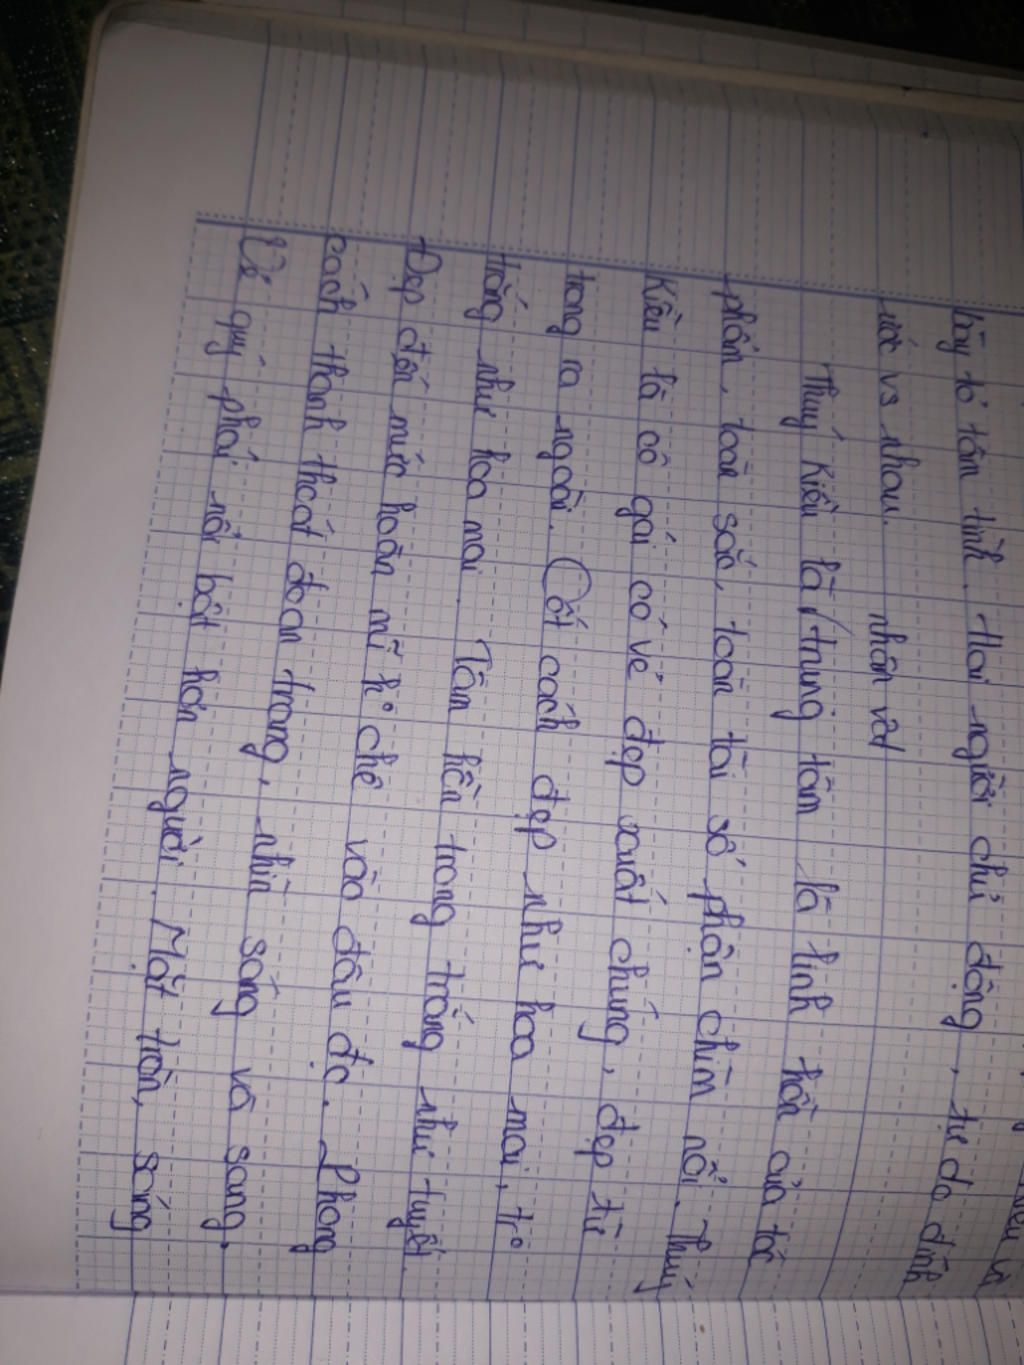 bày tỏ tâm tình. Hai người chủ động, tự do đính
ước vs nhau.
nhân vật
Thuý Kiều là trung tâm là linh hồn của tác
phẩm, toàn sắc, toàn tài số phận chìm nổi. Thuý
Kiều là cô gái có vẻ đẹp xuất chúng, đẹp từ
trong ra ngoài. Cốt cách đẹp như hoa mai, tr
trắng như hoa mai. Tâm hồn trong trắng như tuyết.
Đẹp đến mức hoàn mĩ k° chê vào đâu đc. Phong
cách thanh thoát đoan trang, nhìn sáng và sang.
Vẻ quý phái nổi bật hơn người. Mắt tròn, sáng